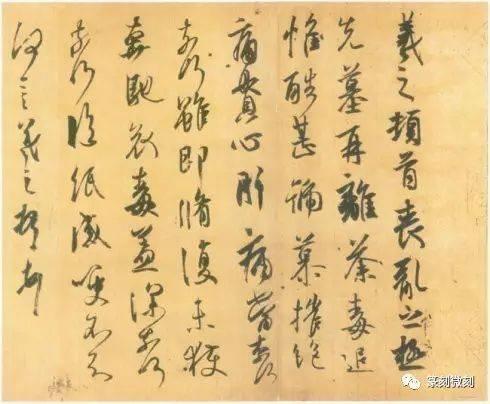 羲之頓首喪亂之極
先墓再離荼毒追
惟酷甚號慕摧絕
痛貫心肝痛當奈何
奈何雖即脩復未獲
奔馳哀毒益深奈何
奈何臨紙感哽不知
何言羲之頓首頓首
篆刻微刻